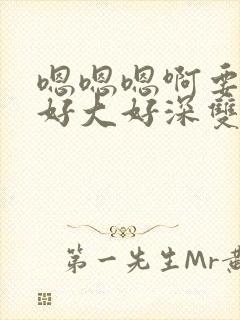 嗯嗯嗯啊要
好大好深雙
第一先生Mr黄